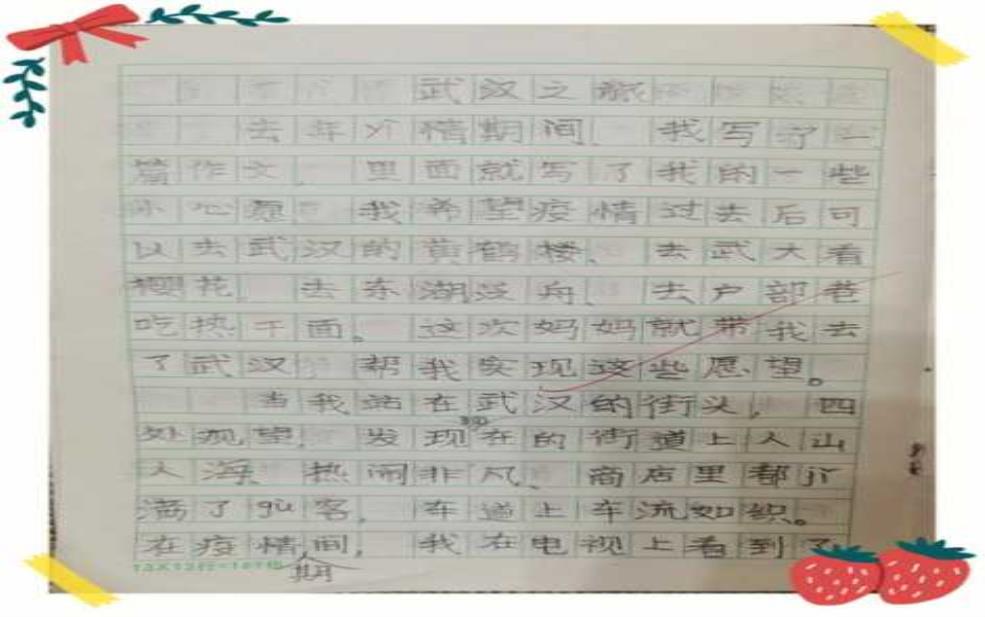 武汉之旅
去年yì情期间,我写了一
篇作文,里面就写了我的一些
小心愿,我希望疫情过去后可
以去武汉的黄鹤楼、去武大看
樱花、去东湖泛舟、去户部巷
吃热干面。这次妈妈就带我去
了武汉,帮我实现这些愿望。
当我站在武汉的街头,四
处观望,发现现在的街道上人山
人海、热闹非凡、商店里都jǐ
满了gù客,车道上车流如织。
在疫情期间,我在电视上看到了